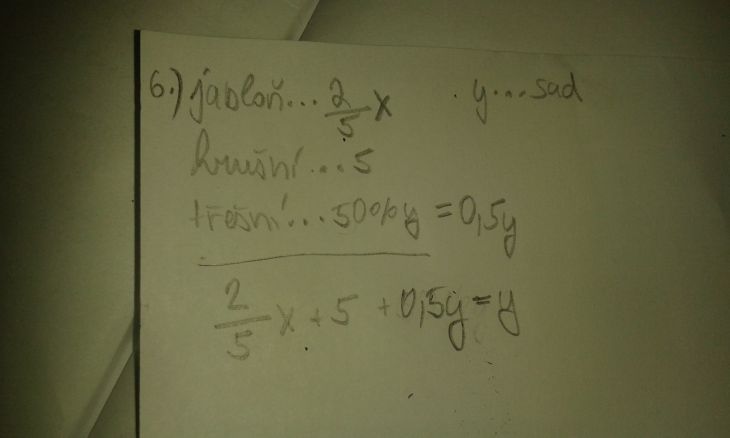 6.) jabloň... 2/5 x y...sad
hrušní...5
třešní...50% y = 0,5y
2/5 x + 5 + 0,5y = y